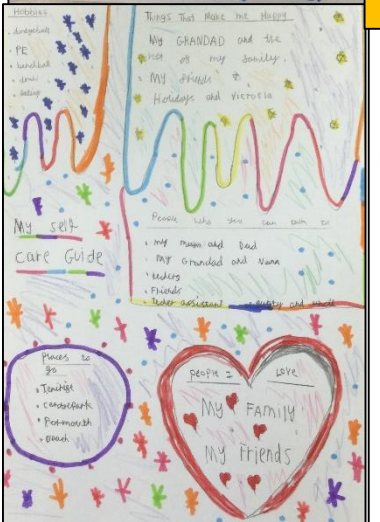 Hobbies
• dodgeball
• PE
• handball
Things That Make me Happy
My GRANDAD and the
rest of my family.
• My friends
Holidays and Victoria
My self
care Guide
People who you can turn to
• my mum and Dad
• My Grandad and Nana
• Friends
• assistant
Places to
go
• Tenerife
• Centrepark
• Portsmouth
• Beach
people I Love
My FAMILY
My Friends